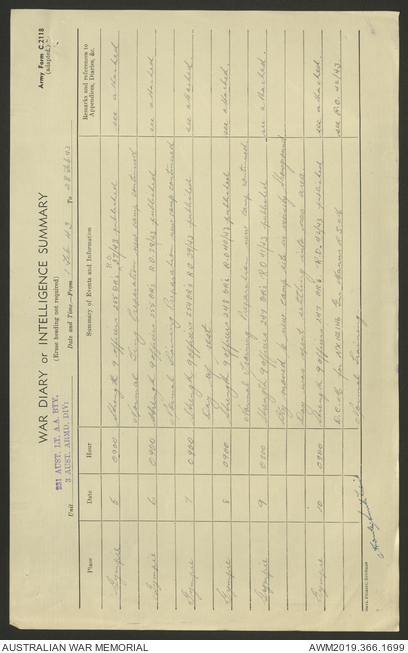 Army Form C.2118
(adapted.)
WAR DIARY or INTELLIGENCE SUMMARY
(Erase heading not required)
231 AUST. LT. A.A. BTY.
3 AUST. ARMD. DIV.
Unit
Date and Time—From Feb 43 To 28 Feb 43
Place Date Hour Summary of Events and Information Remarks and references to Appendices, Diaries, &c.
Gympie 5 0900 Strength 9 officers 255 ORs R.O. 37/43 published see attached
Normal Trng Preparation new camp continued
Gympie 6 0900 Strength 9 officers 255 ORs R.O. 38/43 published see attached
Normal Training Preparation new camp continued
Gympie 7 0900 Strength 9 officers 254 ORs R.O. 39/43 published see attached
Day of rest
Gympie 8 0900 Strength 9 officers 248 ORs R.O 40/43 published see attached.
Normal Training Preparation new camp continued.
Gympie 9 0900 Strength 9 officers 247 ORs R.O. 41/43 published see attached.
Bty moved to new camp site in
Day was spent settling into new area.
Gympie 10 0900 Strength 9 officers 247 ORs R.O. 42/43 published see attached
see R.O. 42/43
Normal Training
AUSTRALIAN WAR MEMORIAL
AWM2019.366.1699